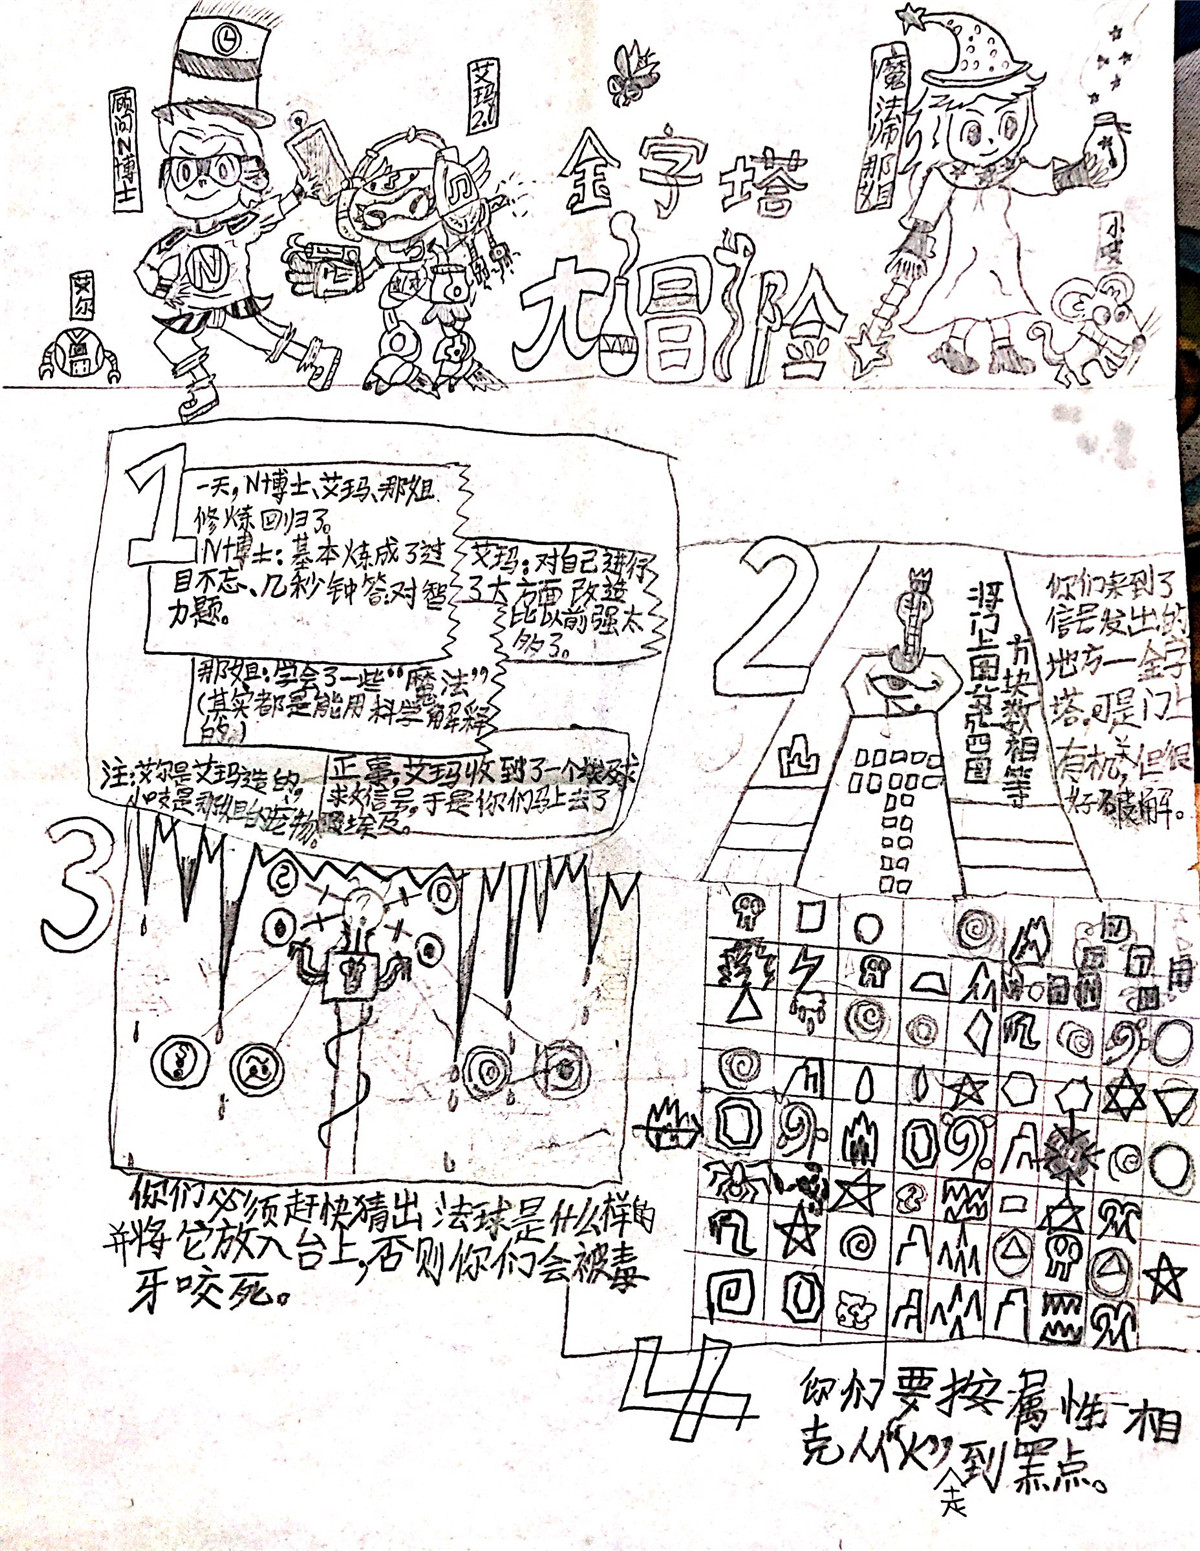 顾问N博士
艾尔
艾玛2.0
金字塔
大冒险
魔法师那姐
小吱
N
1
一天,N博士、艾玛、那姐
修炼回归了。
N博士:基本炼成了过
目不忘、几秒钟答对智
力题。
艾玛:对自己进行
了大方面改造
比以前强太
多了。
那姐:学会了一些“魔法”
(其实都是能用科学解释
的)
注:艾尔是艾玛造的,
小吱是那姐的宠物。
正事:艾玛收到了一个埃及求
救信号,于是你们马上去了
埃及。
2
将门上图分四图
方块数相等
你们来到了
信号发出的
地方一金字
塔,可是门上
有机关,但很
好破解。
3
你们必须赶快猜出法球是什么样的
并将它放入台上,否则你们会被毒
牙咬死。
4
你们要按属性相
克从“火”走到黑点。